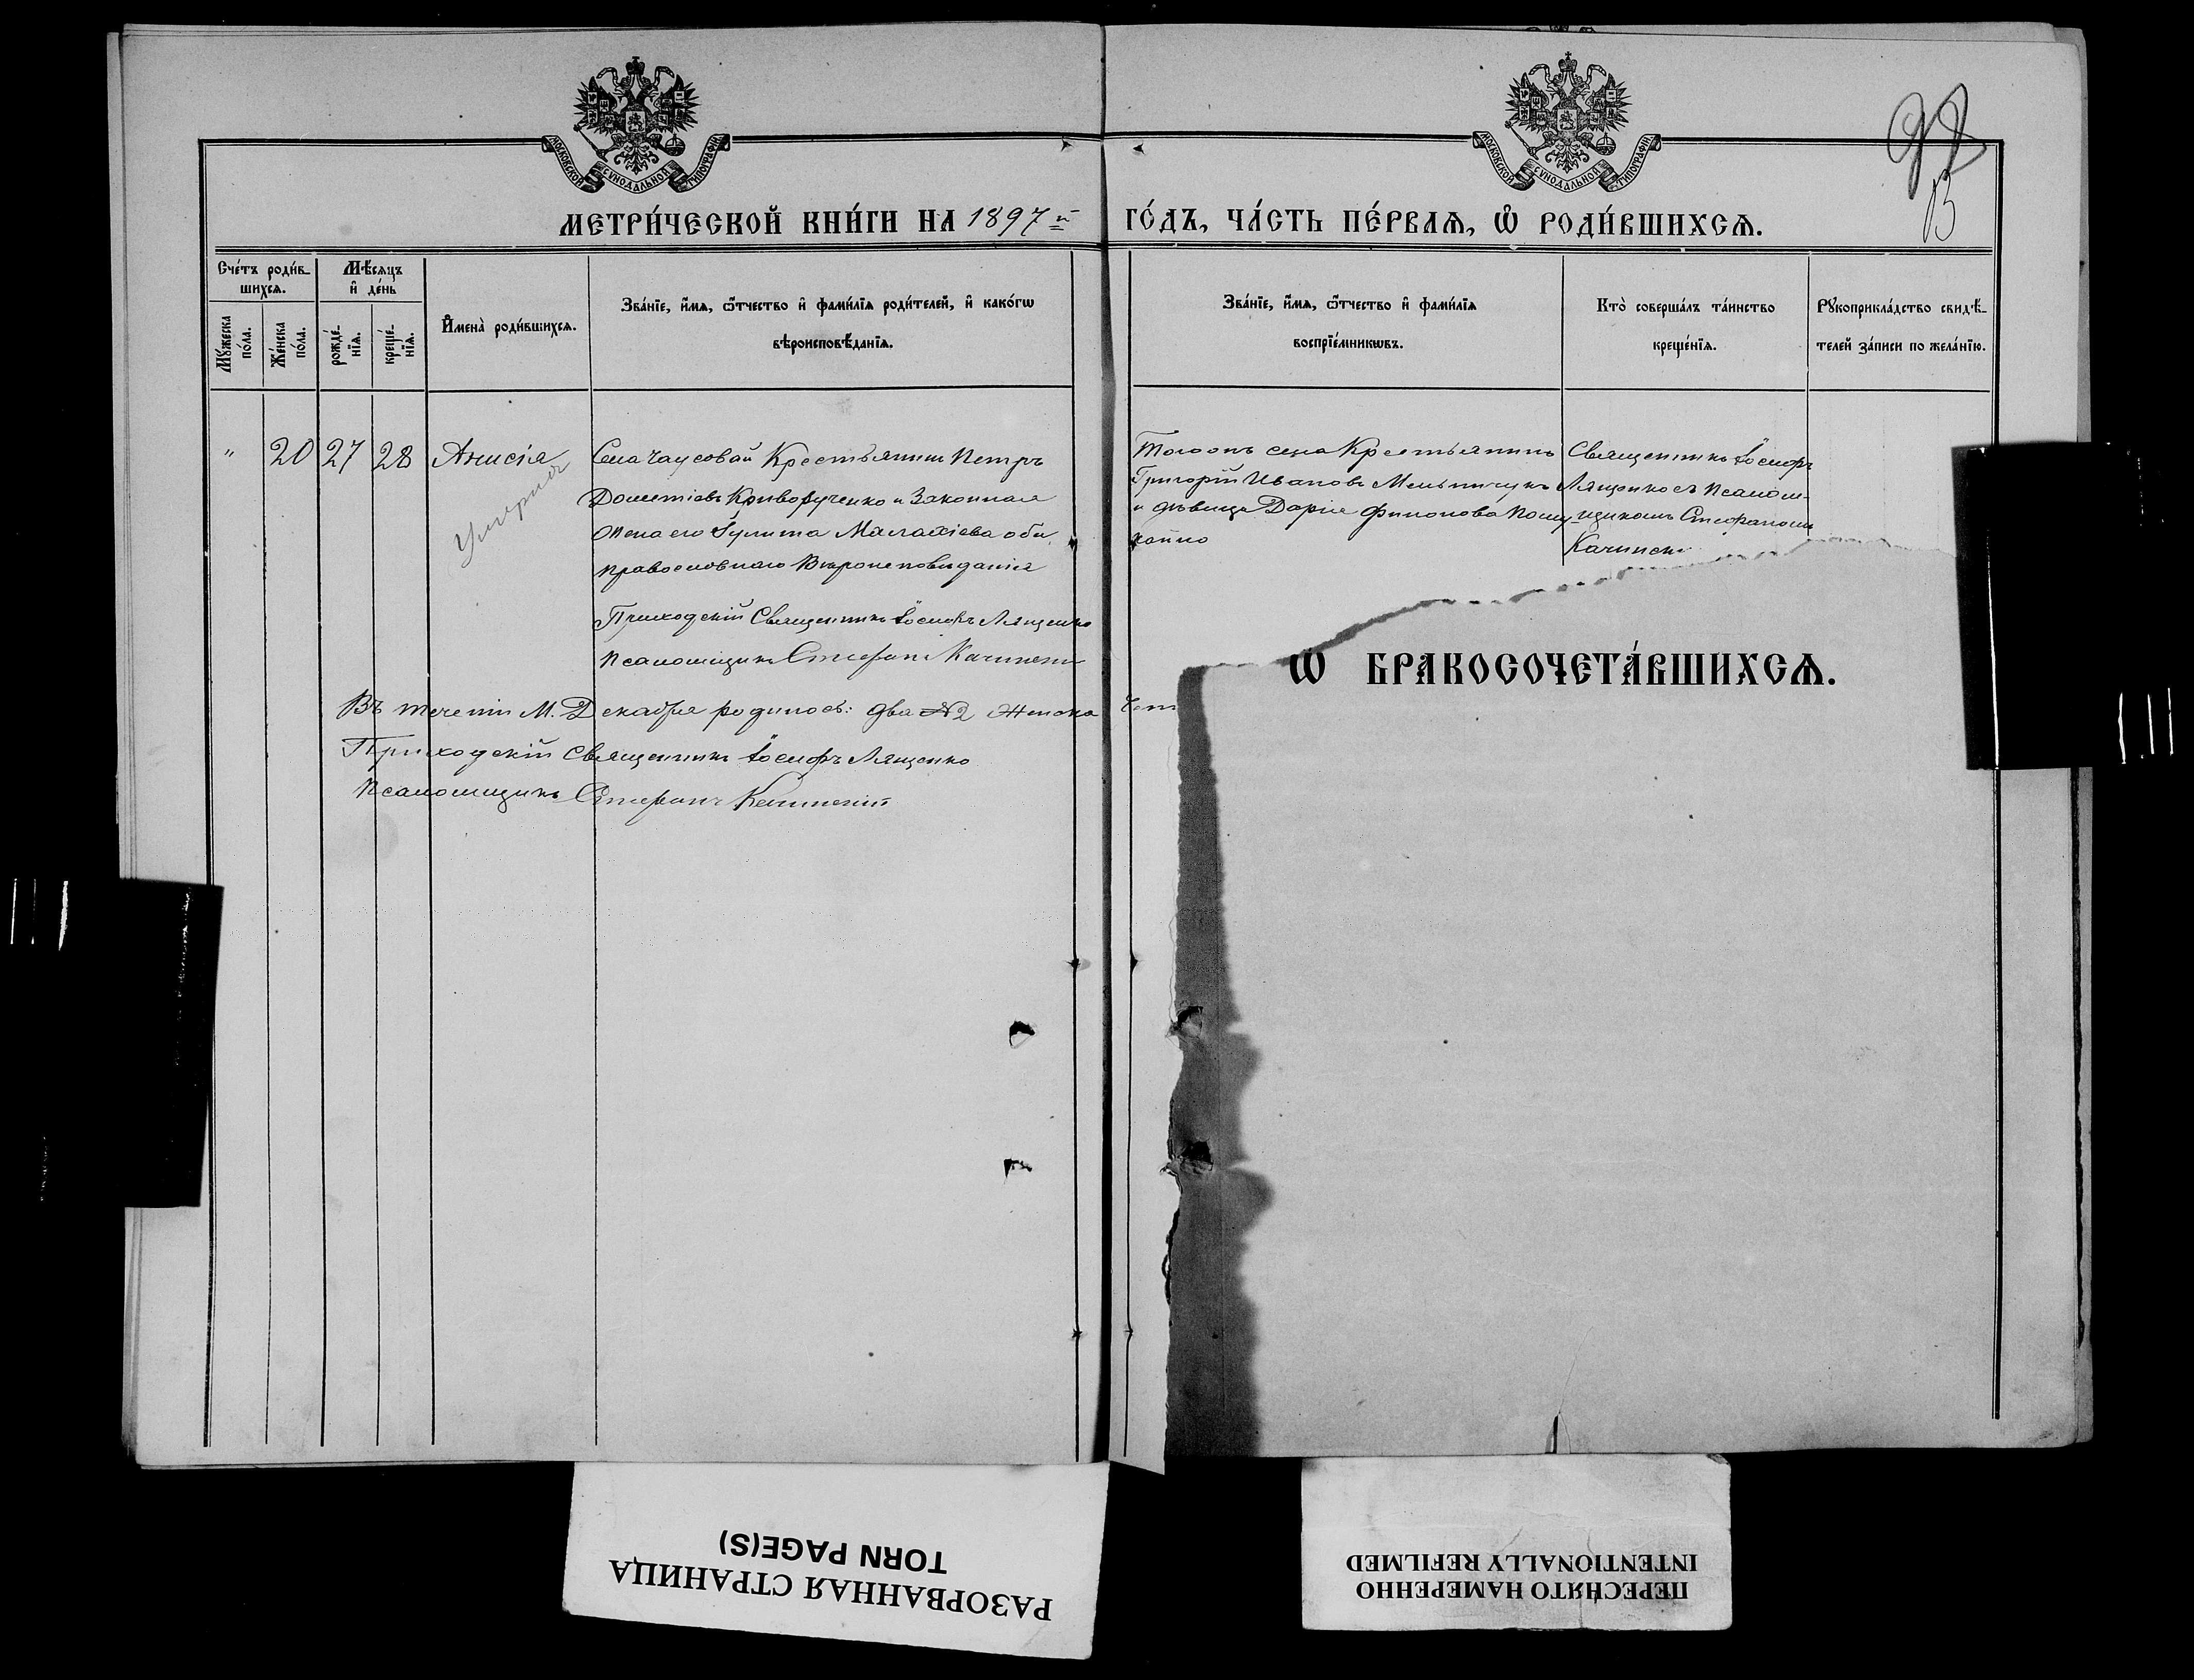 МОСКОВСКОЙ СУНОДАЛЬНОЙ ТИПОГРАФІИ
МОСКОВСКОЙ СУНОДАЛЬНОЙ ТИПОГРАФІИ
МЕТРИ́ЧЕСКОЙ КНИ́ГИ НА 1897й ГО́ДЪ, ЧА́СТЬ ПЕ́РВАѦ, Ѽ РОДИ́ВШИХСѦ.
Сче́тъ роди́в-
шихсѧ.
Мѣ́сѧцъ
и҆ де́нь
Мꙋ́жеска
по́ла.
Же́нска
по́ла.
рожде́-
нїѧ.
креще́-
нїѧ.
И҆мена̀ роди́вшихсѧ.
Зва́нїе, и҆́мѧ, ѻ҆́тчество и҆ фами́лїѧ роди́телей, и҆ како́гѡ
вѣроисповѣ́данїѧ.
Зва́нїе, и҆́мѧ, ѻ҆́тчество и҆ фами́лїѧ
воспрїе́мникѡвъ.
Кто̀ соверша́лъ та́инство
креще́нїѧ.
Рꙋкоприкла́дство свидѣ́-
телей за́писи по жела́нїю.
" 20 27 28 Анисія
Села Чаусовой Крестьянинъ Петръ
Дометіевъ Криворученко и Законная
жена его Іулита Малахіева оби
православнаго Вѣроисповѣданія
Приходскій Священникъ Іосифъ Лященко
Псаломщикъ Стефанъ Качинскій
Тогожъ села Крестьянинъ
Григорій Ивановъ Мельничукъ
и дѣвица Дарія Филонова
Священникъ Іосифъ
Лященко съ псалом-
щикомъ Стефаномъ
Качинск
Въ теченіи М. Декабря родилось: два №2 Женска
Приходскій Священникъ Іосифъ Лященко
Псаломщикъ Стефанъ Качинскій
Ѽ БРАКОСОЧЕТА́ВШИХСѦ.
РАЗОРВАННАЯ СТРАНИЦА
TORN PAGE(S)
ПЕРЕСНЯТО НАМЕРЕННО
INTENTIONALLY REFILMED